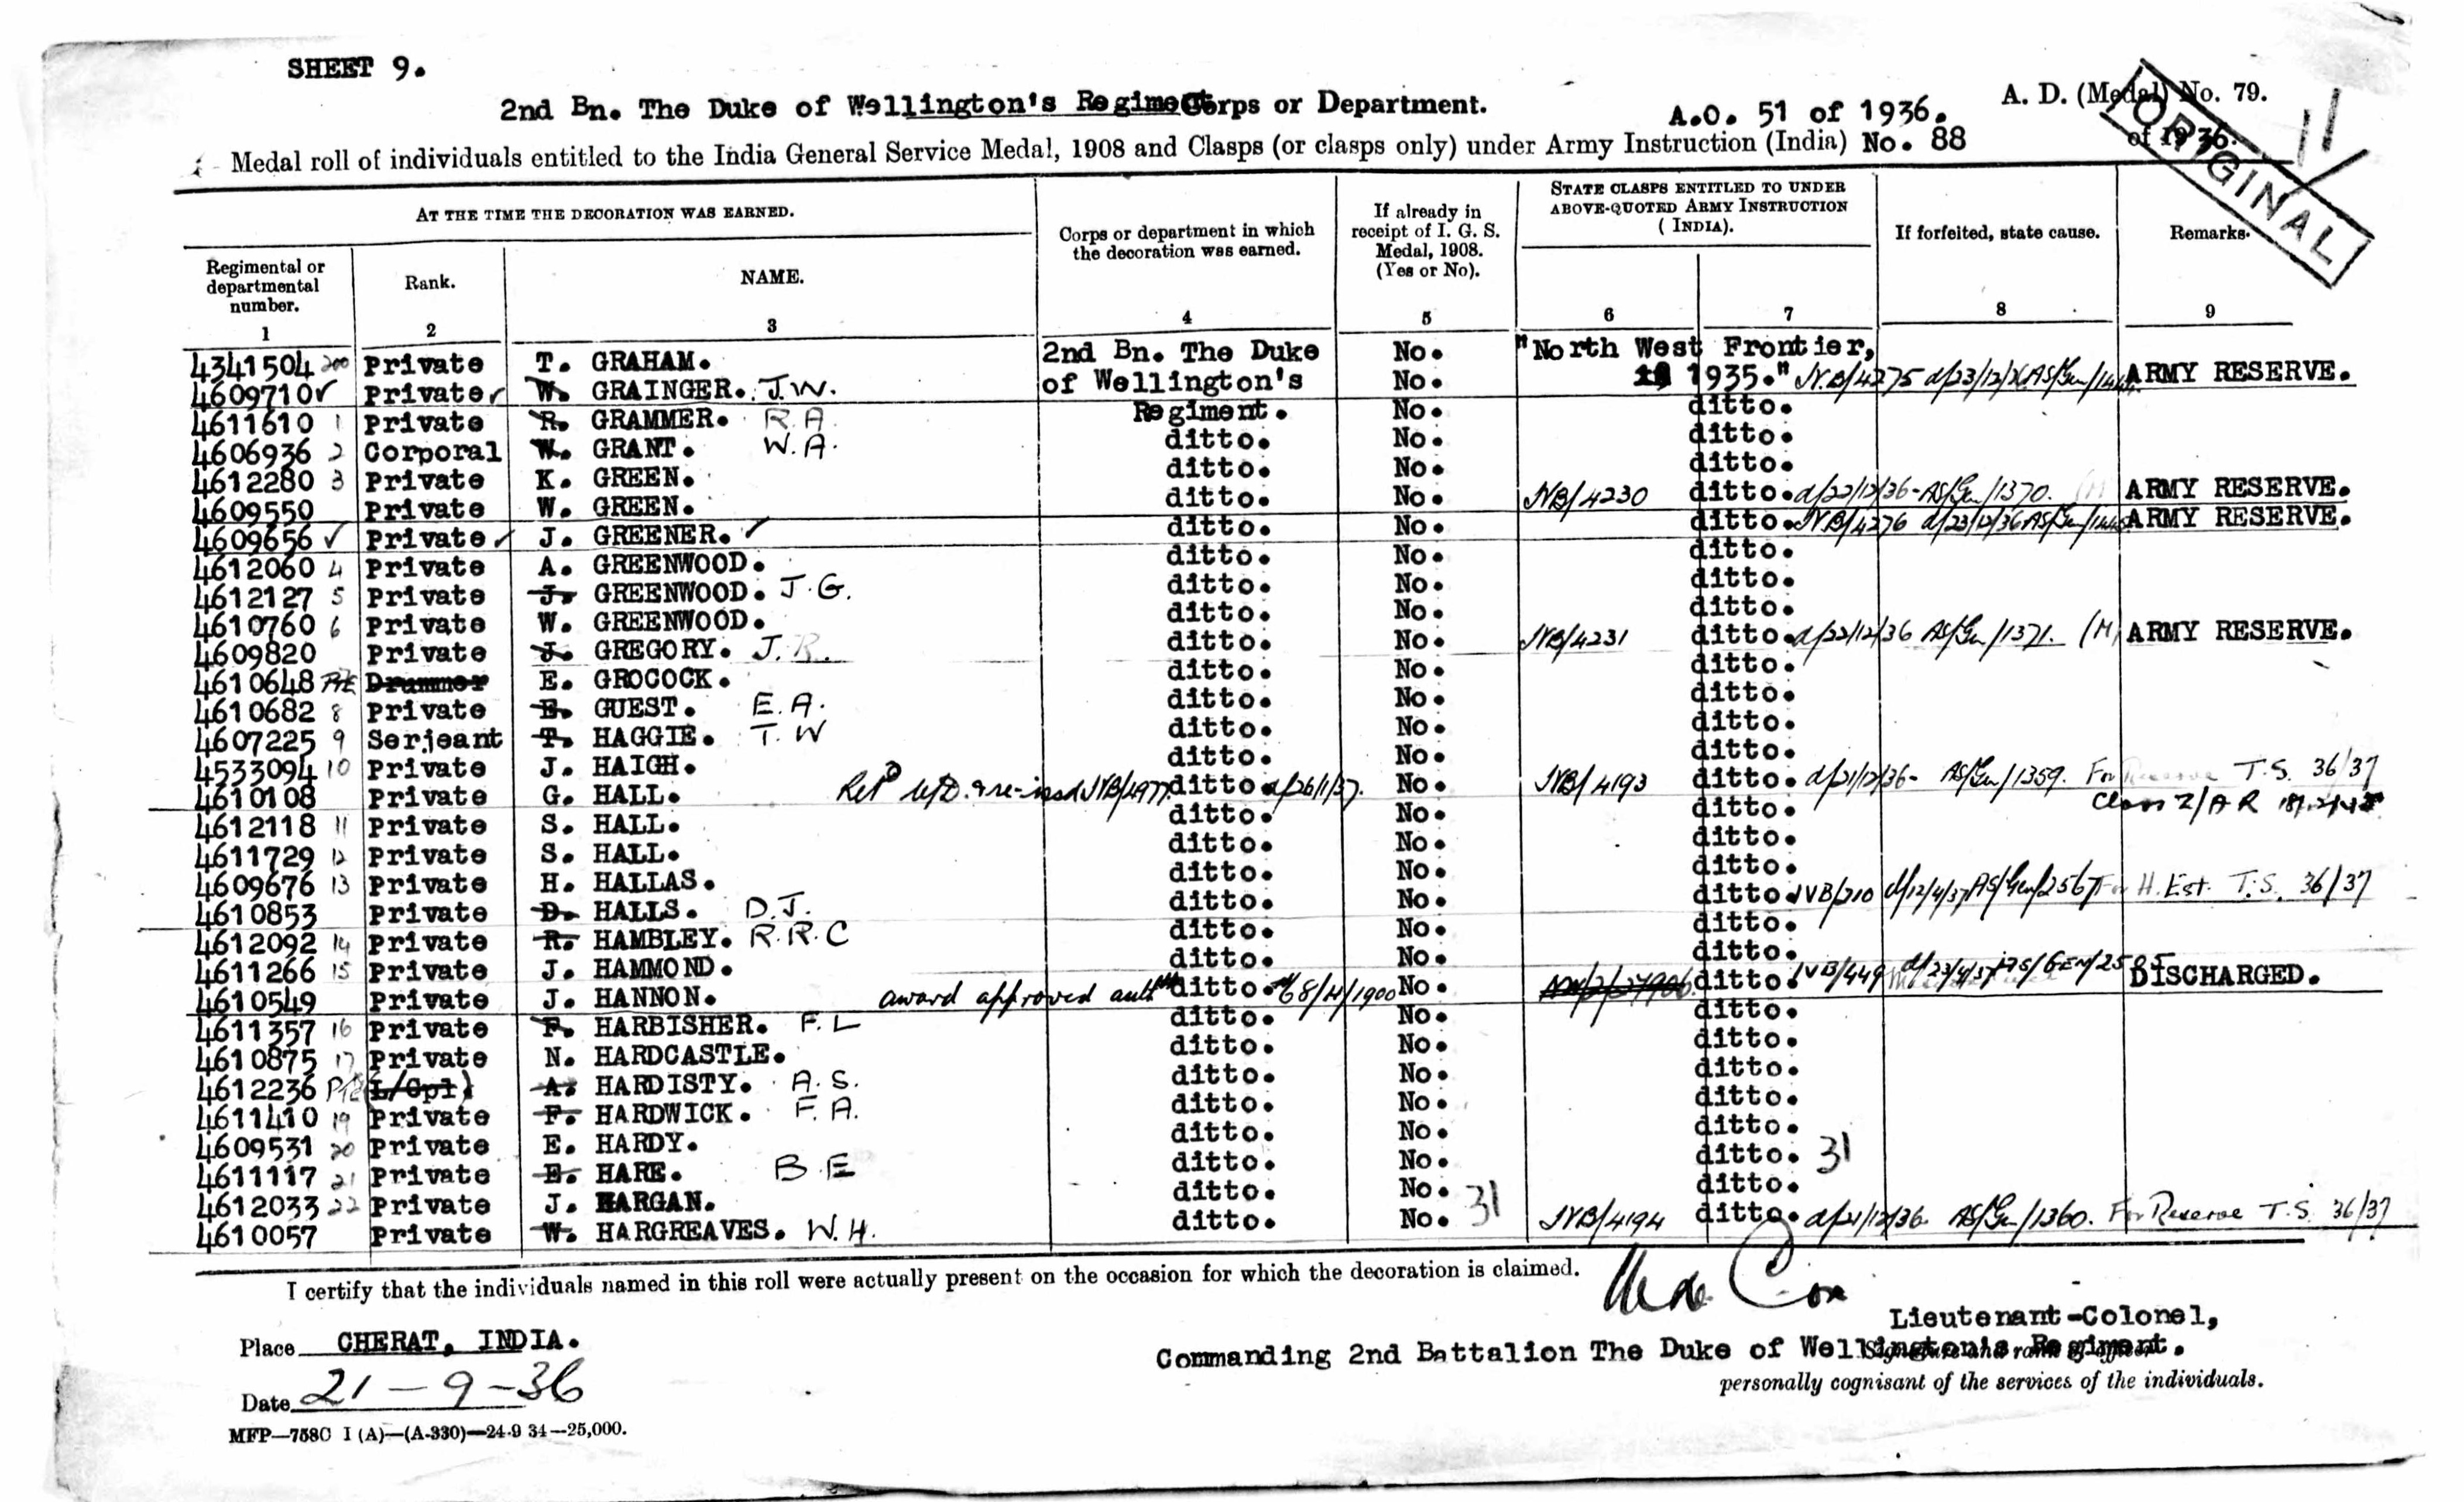 SHEET 9.
2nd Bn. The Duke of Wellington's Regiment Corps or Department.
A.O. 51 of 1936.
A. D. (Medal) No. 79.
of 1936.
ORIGINAL
11
Medal roll of individuals entitled to the India General Service Medal, 1908 and Clasps (or clasps only) under Army Instruction (India) No. 88
AT THE TIME THE DECORATION WAS EARNED.
Corps or department in which the decoration was earned.
If already in receipt of I. G. S. Medal, 1908. (Yes or No).
STATE CLASPS ENTITLED TO UNDER ABOVE-QUOTED ARMY INSTRUCTION (INDIA).
If forfeited, state cause.
Remarks.
Regimental or departmental number.
Rank.
NAME.
1 2 3 4 5 6 7 8 9
4341504 200 Private T. GRAHAM. 2nd Bn. The Duke No. "North West Frontier,
4609710 ✓ Private ✓ W. GRAINGER. J.W. of Wellington's No. 1935." NB/4275 d/23/12/36 AS/Gen/ ARMY RESERVE.
4611610 1 Private R. GRAMMER. R.A Regiment. No. ditto.
4606936 2 Corporal W. GRANT. W.A. ditto. No. ditto.
4612280 3 Private K. GREEN. ditto. No. ditto.
4609550 Private W. GREEN. ditto. No. NB/4230 ditto. d/22/12/36-AS/Gen/1370. (M) ARMY RESERVE.
4609656 ✓ Private ✓ J. GREENER. ✓ ditto. No. ditto. NB/4276 d/23/12/36 AS/Gen/ ARMY RESERVE.
4612060 4 Private A. GREENWOOD. ditto. No. ditto.
4612127 5 Private J. GREENWOOD. J.G. ditto. No. ditto.
4610760 6 Private W. GREENWOOD. ditto. No. ditto.
4609820 Private J. GREGORY. J.R. ditto. No. NB/4231 ditto. d/22/12/36 AS/Gen/1371. (M) ARMY RESERVE.
4610648 Pte Drummer E. GROCOCK. ditto. No. ditto.
4610682 8 Private E. GUEST. E.A. ditto. No. ditto.
4607225 9 Serjeant T. HAGGIE. T.W ditto. No. ditto.
4533094 10 Private J. HAIGH. ditto. No. ditto.
4610108 Private G. HALL. Retd & re-issd NB/4977 ditto. d/26/1/37. No. NB/4193 ditto. d/21/12/36- AS/Gen/1359. For Reserve T.S. 36/37
Class Z/AR
4612118 11 Private S. HALL. ditto. No. ditto.
4611729 12 Private S. HALL. ditto. No. ditto.
4609676 13 Private H. HALLAS. ditto. No. ditto.
4610853 Private D. HALLS. D.J. ditto. No. ditto. NB/210 d/12/4/37 AS/Gen/2567 For H. Est. T.S. 36/37
4612092 14 Private R. HAMBLEY. R.R.C ditto. No. ditto.
4611266 15 Private J. HAMMOND. ditto. No. ditto.
4610549 Private J. HANNON. award approved auth ditto. 68/4/1900 No. ditto. NB/449 d/23/4/37 AS/GEN/2585 DISCHARGED.
4611357 16 Private F. HARBISHER. F.L ditto. No. ditto.
4610875 17 Private N. HARDCASTLE. ditto. No. ditto.
4612236 Pte (L/Cpl) A. HARDISTY. A.S. ditto. No. ditto.
4611410 19 Private F. HARDWICK. F.A. ditto. No. ditto.
4609531 20 Private E. HARDY. ditto. No. ditto.
4611117 21 Private E. HARE. B E ditto. No. ditto. 31
4612033 22 Private J. HARGAN. ditto. No. 31 ditto.
4610057 Private W. HARGREAVES. W.H. ditto. No. NB/4194 ditto. d/21/12/36. AS/Gen/1360. For Reserve T.S. 36/37
I certify that the individuals named in this roll were actually present on the occasion for which the decoration is claimed.
Lieutenant-Colonel,
Place CHERAT, INDIA.
Commanding 2nd Battalion The Duke of Wellington's Regiment.
personally cognisant of the services of the individuals.
Date 21-9-36
MFP—758C I (A)—(A-330)—24-9 34—25,000.